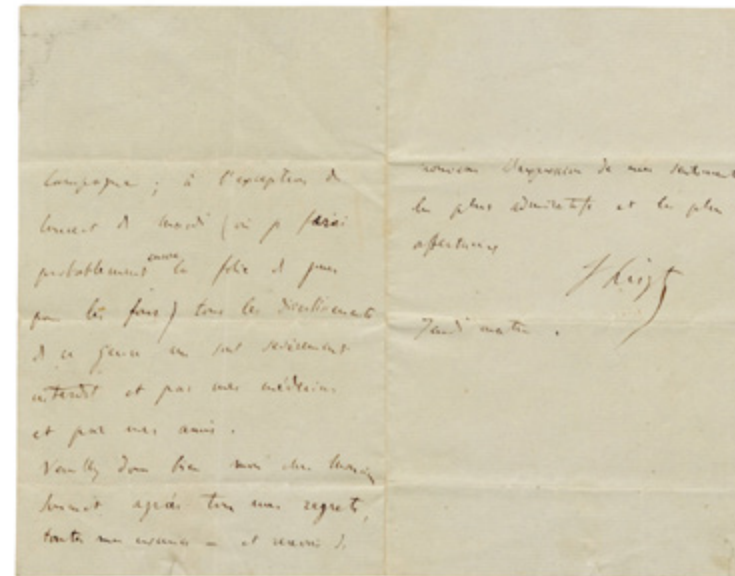 Campagne ; à l'exception du
Concert de mardi (où je ferai
probablement encore la folie de jouer
pour les fous) tous les divertissements
de ce genre me sont sévèrement
interdit et par mes médecins
et par mes amis.
Veuillez donc bien mon cher Monsieur
agréer tous mes regrets,
toutes mes excuses — et recevoir de
nouveau l'expression de mes sentiments
les plus admiratifs et les plus
affectueux
F Liszt
Jeudi matin.